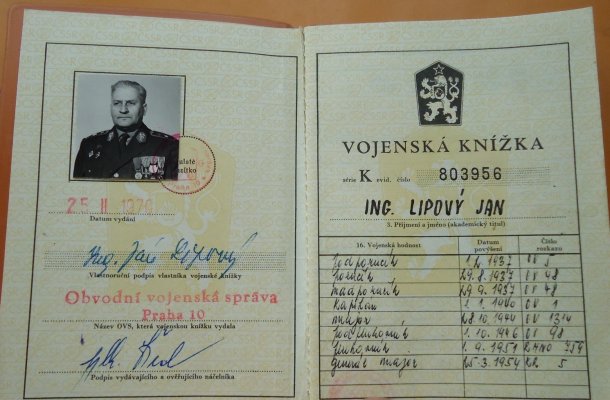 25 II 1976
Datum vydání
Ing. Jan Lipový
Vlastnoruční podpis vlastníka vojenské knížky
Obvodní vojenská správa
Praha 10
Název OVS, která vojenskou knížku vydala
Podpis vydávajícího a ověřujícího náčelníka
VOJENSKÁ KNÍŽKA
série K evid. číslo 803956
ING. LIPOVÝ JAN
3. Příjmení a jméno (akademický titul)
16. Vojenská hodnost Datum povýšení Číslo rozkazu
podporučík 1. 7. 1937 OV 5
poručík 29. 8. 1937 OV 48
nadporučík 29. 9. 1937 OV 48
kapitán 1. 1. 1940 OV 1
major 28 10 1944 OV 1314
podplukovník 1. 10. 1946 OV 98
plukovník 1. 9. 1951 759
generál major 25. 3. 1954 5